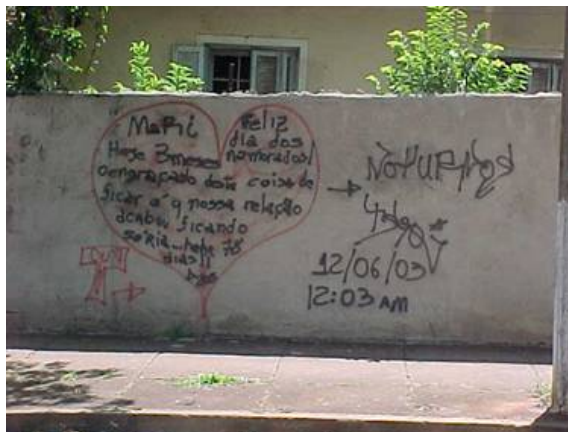 MARi
Feliz
dia dos
namorados!
Hoje 3 meses
o engraçado dessa coisa de
ficar é q nossa relação
acabou ficando
séria... hehe 78
dias!!
12/06/03
12:03 AM